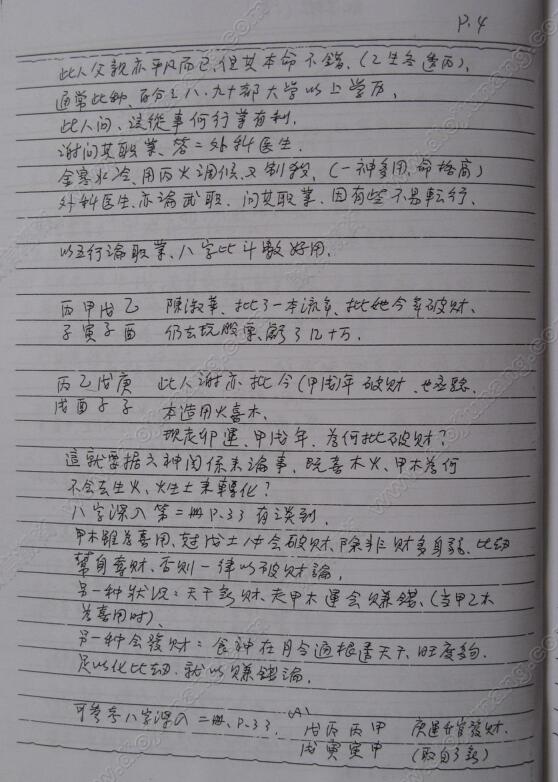 P.4
此人父親亦平凡而已,但其本命不錯、(乙生冬透丙)、
通常此种、百分之八、九十都大学以上学历、
此人问、该從事何行業有利、
谢问其职業、答=外科医生.
金寒水冷、用丙火调候、又制殺、(一神多用、命格高)
外科医生、亦論武职、问其职業、因有些不易転行、
以五行論职業、八字比斗數好用、
丙甲戊乙 陳淑華、批了一本流年、批她今年破财、
子寅子酉 仍去玩股票、虧了几十万、
丙乙戊庚 此人謝亦批今(甲戌)年破财
戌酉子子 本造用火喜木、
現走卯運、甲戌年、為何批破财?
這就要据六神関係来論事、既喜木火、甲木為何
不会去生火、火生土来轉化?
八字深入第二册P.33有談到、
甲木雖為喜用、尅戊土、必会破财、除非财多身弱、比劫
幫身奪财、否則一律以破财論、
另一种狀况=天干無财、走甲木運会賺錢、(当甲乙木
為喜用时)、
另一种会發财=食神在月令通根透天干、旺度夠、
足以化比劫、就以賺錢論、
可参考八字深入二册、P.33、(A) 戊丙丙甲 庚運升官發财、
戌寅寅甲